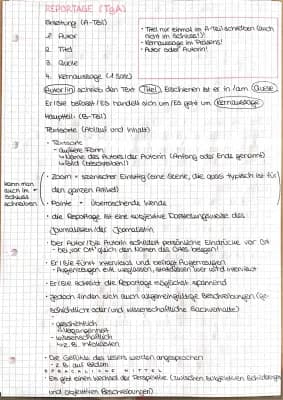 REPORTAGE (TGA)
Einleitung (A-Teil)
1. Autor
2. Titel
3. Quelle
4. Kernaussage (1 Satz)
• Titel nur einmal im A-Teil schreiben (auch
nicht im Schluss!)!
• Kernaussage im Präsens!
• Autor oder Autorin!
Autor/in schrieb den Text Titel. Erschienen ist er in/am Quelle
Er/Sie befasst/Es handelt sich um/Es geht um Kernaussage
Hauptteil (B-Teil)
Textsorte (Ablauf und Inhalt)
• Textsorte
- äußere Form
↳ Name des Autors/der Autorin (Anfang oder Ende genannt)
↳ Bild (beschreiben!)
kann man
auch im
Schluss
schreiben
• Zoom = szenischer Einstieg (eine Szene, die quasi typisch ist für
den ganzen Artikel)
• Pointe = überraschende Wende
• die Reportage ist eine subjektive Darstellungsweise des
Journalisten/der Journalistin
• Der Autor/Die Autorin schildert persönliche Eindrücke vor Ort
- bei "vor Ort" gleich den Namen des Ortes
• Er/Sie führt Interviews und befragt Augenzeugen
- Augenzeugen evtl. weglassen, stattdessen wer wird interviewt
• Er/Sie schreibt die Reportage möglichst spannend
• Jedoch finden sich auch allgemeingültige Beschreibungen (ge-
schichtlich oder/und wissenschaftliche Sachverhalte)
- geschichtlich
↳ Vergangenheit
- wissenschaftlich
↳ z.B. Infokasten
• Die Gefühle des Lesers werden angesprochen
- z.B. auf Bildern
SPRACHLICHE MITTEL
• Es gibt einen Wechsel der Perspektive (zwischen subjektiven Schilderungen
und objektiven Beschreibungen)